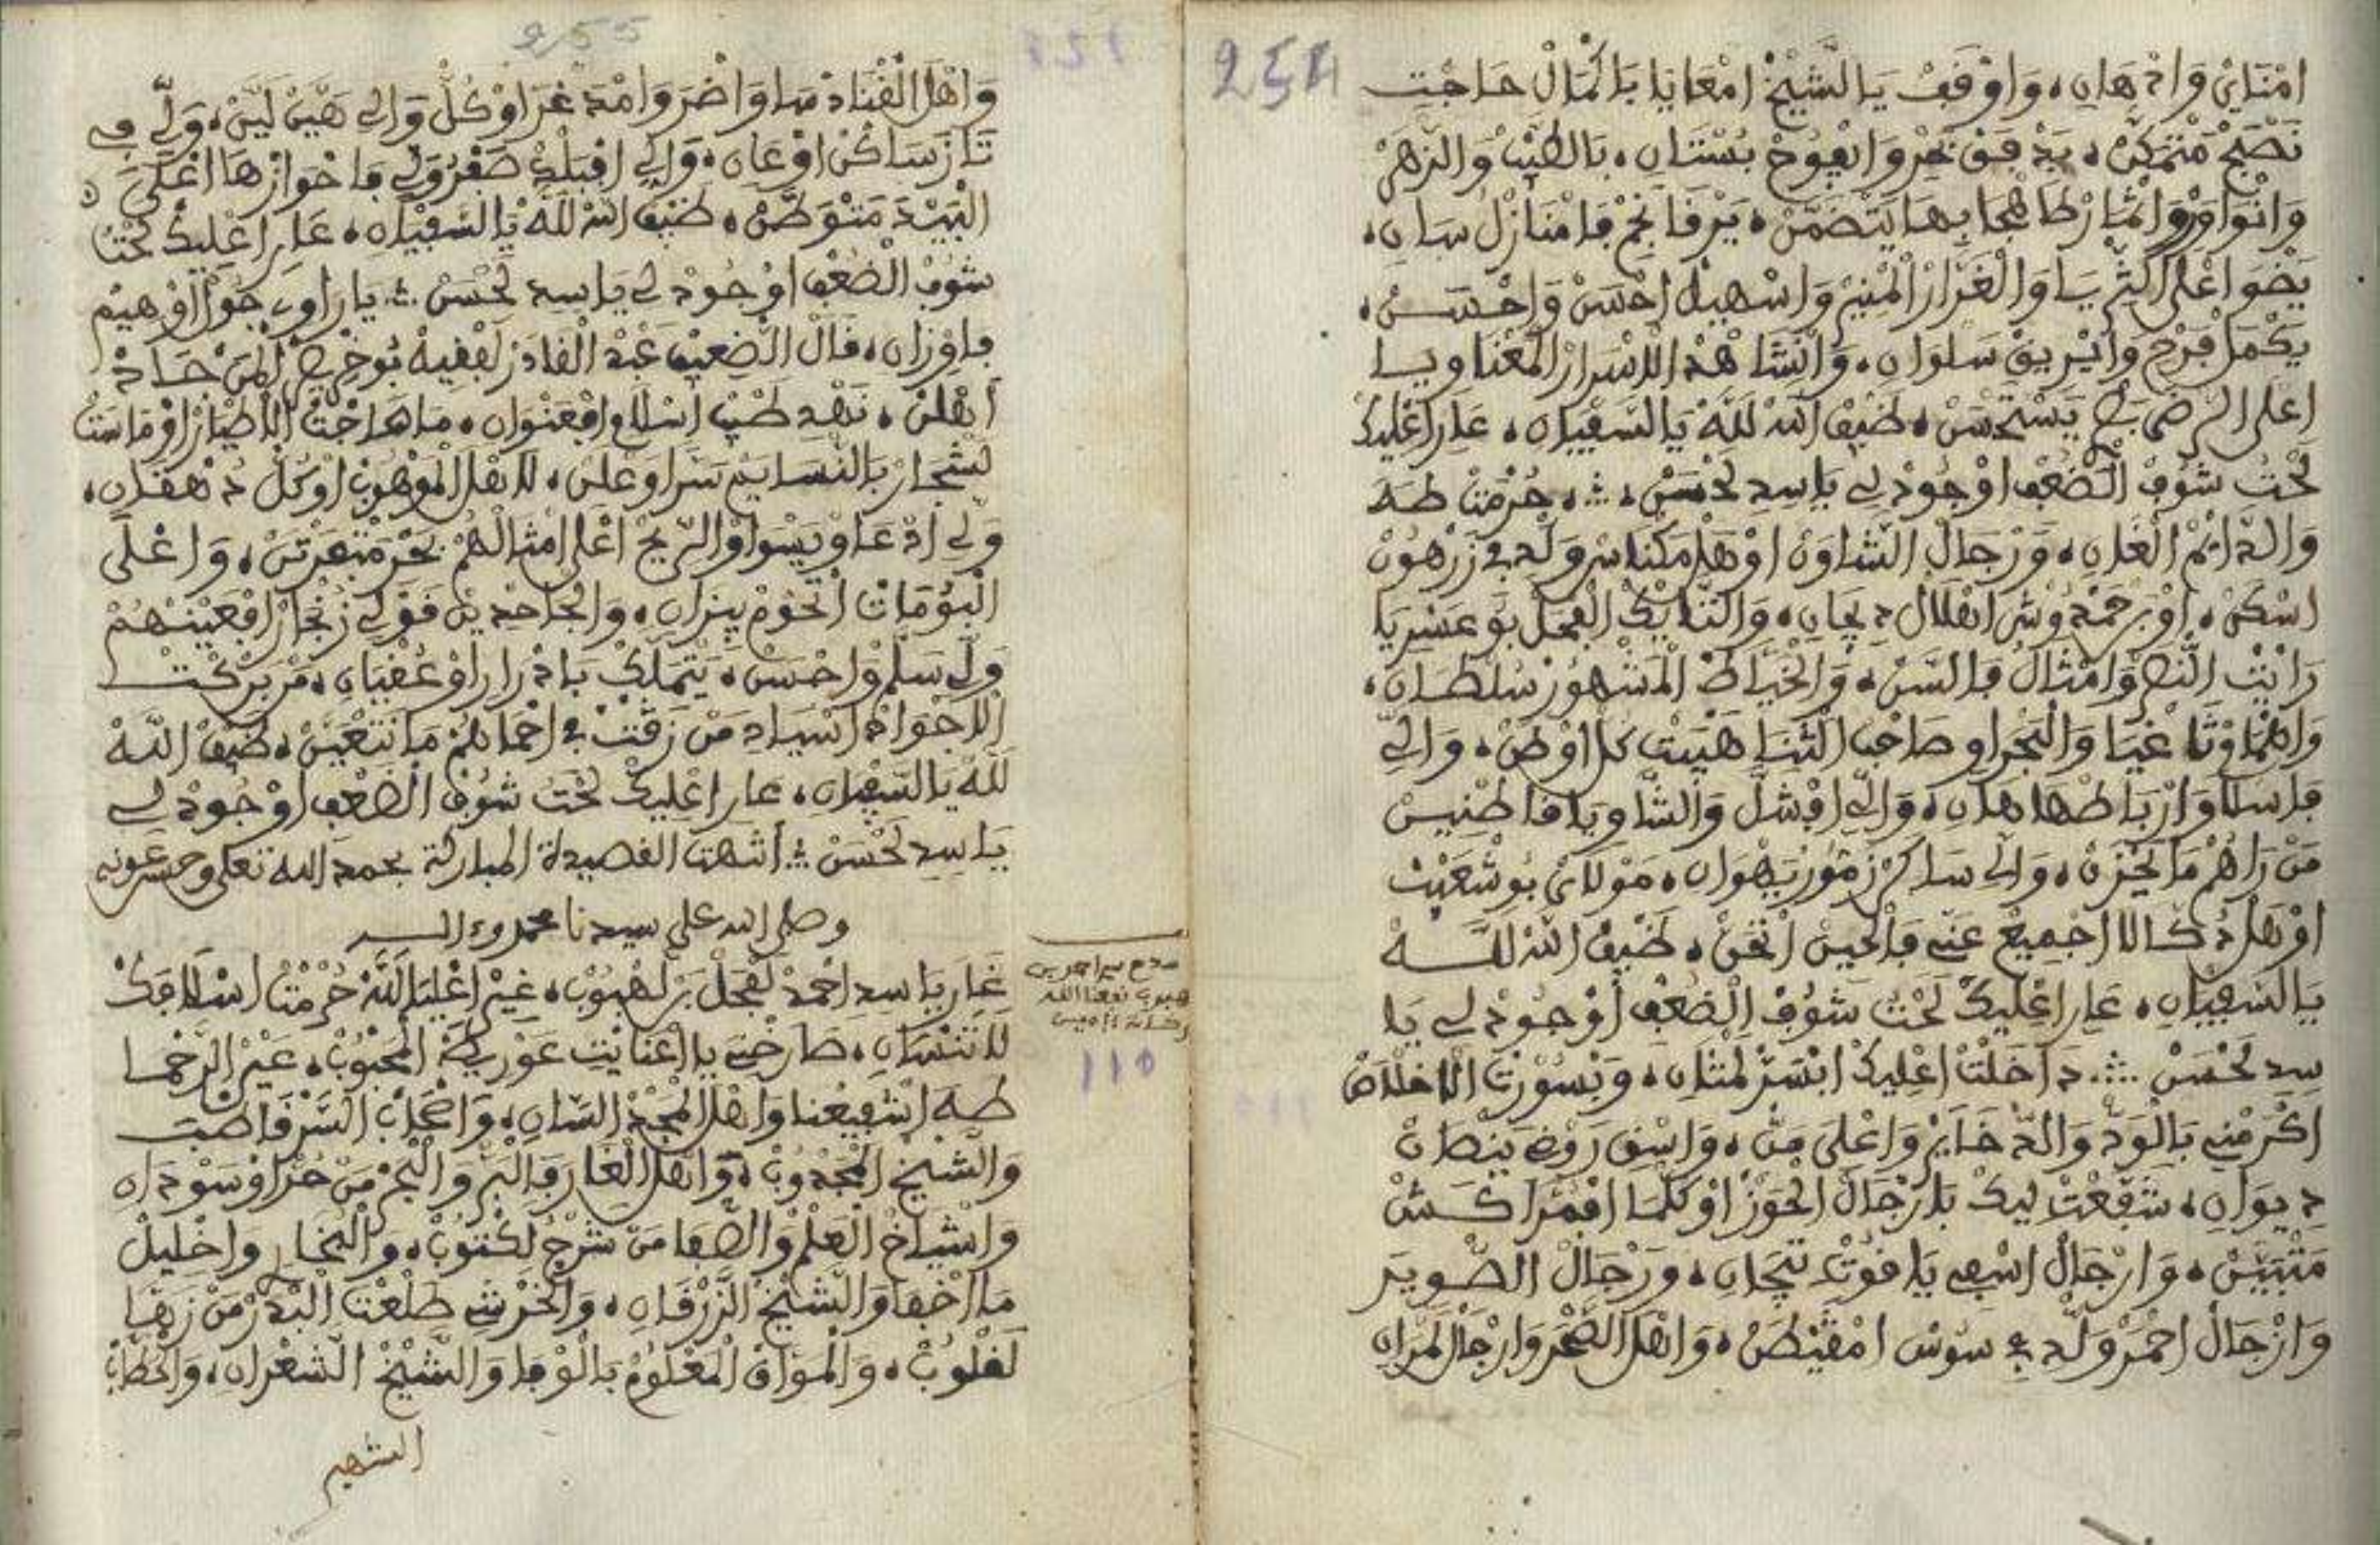 254
امْنَايَ وَادْهَانِ، وَاوْقَفْ يَا الشَّيْخْ امْعَايَا بَاكْمَالْ حَاجْتِ
نَصْبَحْ مَتْمَكَّنْ، يَدْفَقْ بَحْرِ وَايْفُوحْ بُسْتَانِ، بَالطِّيبْ وَالزْهَرْ
وَانْوَاوَرْ بِهَا يَتْضَمَّنْ، يَرْقَا نَجْمِ فَامْنَازَلْ سَانِ،
يَضْوَ اعْلَى الثْرِيَا وَالْغَرَّارْ الْمْنِيرْ وَاسْهِيلْ احْسَنْ وَاحْسَنْ،
يَكْمَلْ فَرْحِ وَانْرِيقْ سَلْوَانِ، وَانْشَاهْدْ الاسْرَارْ الْمَعْنَاوِيَا
اعْلَى الرْضَى يَسْتَحْسَنْ، ضَيْفْ اللهْ للهْ يَا السَّفْيَانِ، عَارِ اعْلِيكْ
لَحْتْ شُوفْ الضُّعْفْ اوْجُودْ لِي يَا سِيدِ لَحْسَنْ، حُرْمْتْ طَهَ
وَالدَّايَمْ الْغَانِ، وَرْجَالْ الشَّاوَنْ اوْهَلْ مَكْنَاسْ وَلِّدِ فِي زَرْهُونْ
اسْكَنْ، اوْبَرْحَمْدُوشْ اهْلَالْ دِيجَانِ، وَالنَّايَكْ الْفَحَلْ بُوعَسْرِيَا
رَايْتْ النَّصْرْ وَامْثَالُ فَالسَّنْ، وَالْخَيَّاطْ الْمَشْهُورْ سُلْطَانِ،
وَالْبَحْرَاوِ صَاحَبْ الثْنَا هَيْبَتْ كُلْ اوْطَنْ، وَالِّي
فَاسْلَا وَارْبَاطْهَا هَانِ، وَالِّي افْشَلَّ وَالشَّاوِيَا فَاطْنِيسْ
مَنْ رَاهُمْ مَا يَحْزَنْ، وَالِي سَاكَنْ زَمُّورْ بَهْوَانِ، مَوْلَايْ بُوشْعَيْبْ
اوْهَلْ دُكَّالَا اجْمِيعْ عَنِّي فَالْحِينْ اتْحَنْ، ضَيْفْ اللهْ للهْ
يَا السَّفْيَانِ، عَارِ اعْلِيكْ لَحْتْ شُوفْ الضُّعْفْ اوْجُودْ لِي يَا
سِيدِ لَحْسَنْ، دَاخَلْتْ اعْلِيكْ ابْسَرْ لَمْثَانِ، وَبْسُورْتْ الاخْلَاصْ
اكْرَمْنِي بَالْوَدّْ وَالدّْخَايَرْ وَاعْلَى مَنْ، وَاسْقِ رَوْضِ يَنْطَاقْ
دِيوَانِ، شَفَّعْتْ لِيكْ بَارْجَالْ الْحَوْزْ اوْكُلْمَا افْمُرَّاكُشْ
مَتْبَيَّنْ، وَارْجَالْ اسْفِي يَا قُوتْ تِيجَانِ، وَرْجَالْ الصّْوِيرَ
وَارْجَالْ احْمَرْ وَلِّدِ فِي سُوسْ امْقَيْطَنْ، وَاهْلْ الصَّحْرَ وَارْجَالْ لَمْرَانِ
255
وَاهْلْ الْقْنَادْسَا وَاخْضَرْ وَامْدَغْرَ اوْكُلّْ وَالِي هَيَّنْ لَيَّنْ، وَلِّي فِي
تَازَ سَاكَنْ اوْعَانِ، وَالِي افْبَلْدْ صَفْرُ وَلِي فَاحْوَازْهَا اعْلَى
الْبَيْدَ مَتْوَطَّنْ، ضَيْفْ اللهْ للهْ يَا السَّفْيَانِ، عَارِ اعْلِيكْ لَحْتْ
شُوفْ الضُّعْفْ اوْجُودْ لِي يَا سِيدِ لَحْسَنْ، يَا رَاوِي جَوَّلْ اوْهِيمْ
فَاوْزَانِ، قَالْ الضْعِيفْ عَبْدْ الْقَادَرْ لَفْقِيهْ بُوخْرِيصْ الْمَنْ حَادْ
اهْلَنْ، نَهْدِ طَيْبْ اسْلَامِ افْعَنْوَانِ، مَا هَاجْتْ الاطْيَارْ اوْمَاسَتْ
لَشْجَارْ بَالنّْسَايَمْ سَرّْ اوْعَلَنْ، لَاهْلْ الْمَوْهُوبْ اوْكُلْ دَهْقَانِ،
وَلِي ادْعَاوْ يَسْوَاوْ الرِّيحْ اعْلَى امْثَالْهُمْ بَحْرِ مَتْفَرْتَنْ، وَاعْلَى
الْبُومَاتْ اتْحُومْ بِيزَانِ، وَالْجَاحْدِينْ قَوْلِي زُنْجَارْ افْعَيْنْهُمْ
وَلِّ سَلَّمْ وَاحْسَنْ، يَتْمَلَّكْ بَادْرَارْ اوْعُقْيَانِ، مَنْ بَرْكَتْ
الاجْوَادْ اسْيَادِ مَنْ زَقْتْ فِي احْمَاهُمْ مَا نَتْغَبَّنْ، ضَيْفْ اللهْ
للهْ يَا السَّفْيَانِ، عَارِ اعْلِيكْ لَحْتْ شُوفْ الضُّعْفْ اوْجُودْ لِي
يَا سِيدِ لَحْسَنْ، انتهت القصيدة المباركة بحمد الله تعلى وحسن عونه
وصلى الله على سيدنا محمد وءاله
غَارِ يَا سِيدِ احْمَدْ لَفْحَلْ بَنْ لَهْبُوبْ، غِيرْ اعْلِيَا للهْ حُرْمْتْ اسْلَافَكْ
لَا تَنْسَانِ، صَارْخْنِي يَا اعْنَايْتِ عَوْرِيكَهْ الْمَحْبُوبْ، عَيْنْ الرَّحْمَا
طَهَ اشْفِيعْنَا وَاهْلْ الْمَجْدْ السَّانِ، وَاصْحَابْ السَّرّْ قَاطْبَ
وَالشَّيْخْ الْمَجْدُوبْ، وَاهْلْ الْغَارْ فَالْبَرّْ وَالْبَحْرْ مَنْ حُرّْ اوْسُودَانِ
وَاشْيَاخْ الْعَلْمْ وَالصّْفَا مَنْ شَرْحْ لَكْتُوبْ، وَالْبُخَارِ وَاخْلِيلْ
مَا اخْفَا وَالشَّيْخْ الزَّرْقَانِ، وَالْخَرْشِي طَلْعْتْ الْبْدَرْ مَنْ زَهَّا
لَقْلُوبْ، وَالْمَوَّاقْ الْمَعْلُومْ بَالْوْفَا وَالشَّيْخْ الشَّعْرَانِ، وَالْحَطَّابْ
الشهير
110